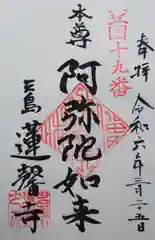 奉拝
令和六年三月二十五日
豆国十九番
本尊
阿弥陀如来
三島
蓮馨寺